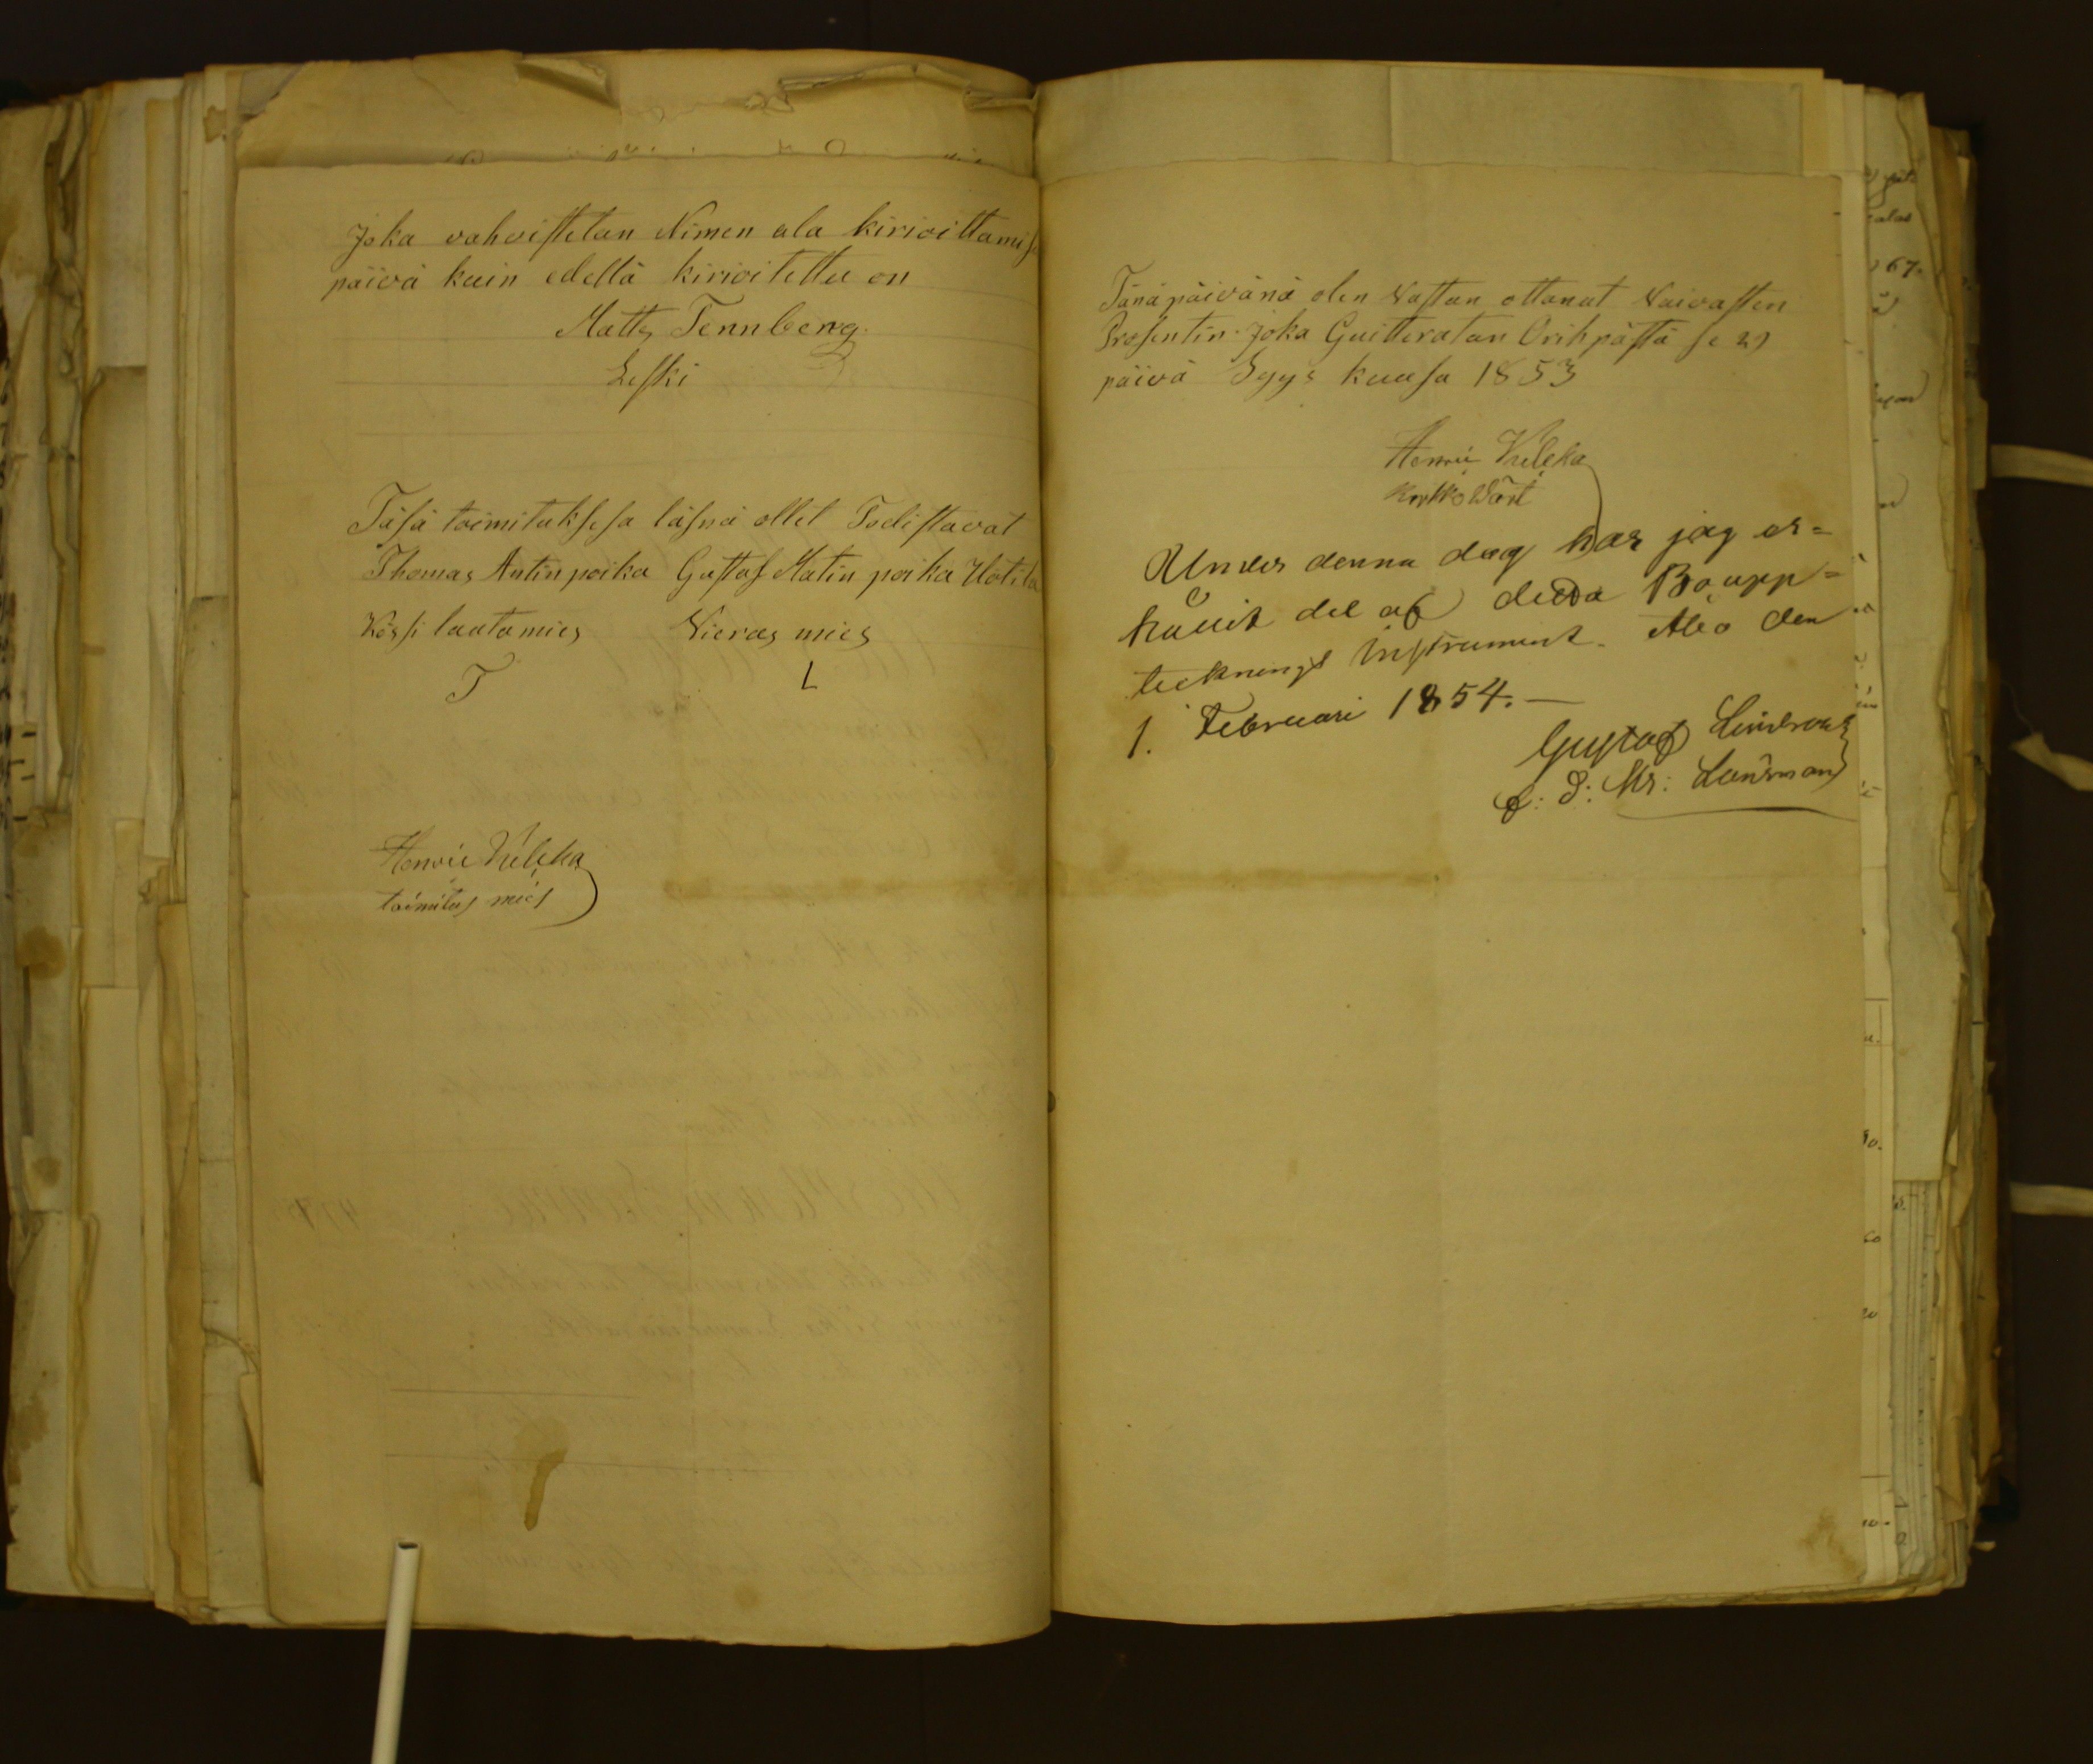 Joka vahvistetan Nimen ala kirioittamise
päivä kuin edellä kirioitettu on
Matts Tennberg
Leski
Täsä toimituksesa läsnä ollet Todistavat
Thomas Antinpoika Gustaf Matin poika Uotila
Kössi lautamies Vieras mies
T L
Henric Kélcka
toimitus mies
Tänäpäivänä olen Vastan ottanut Vaivasten
Prosentin. Joka Guitteratan Orihpästä se 29
päivä Syys kuusa 1853
Henric Kélcka
Under denna dag har jag er=
hållit del af detta Bo,upp=
tecknings instrument. Åbo den
1. Februari 1854.—
Gustaf Lindroos
Länsman